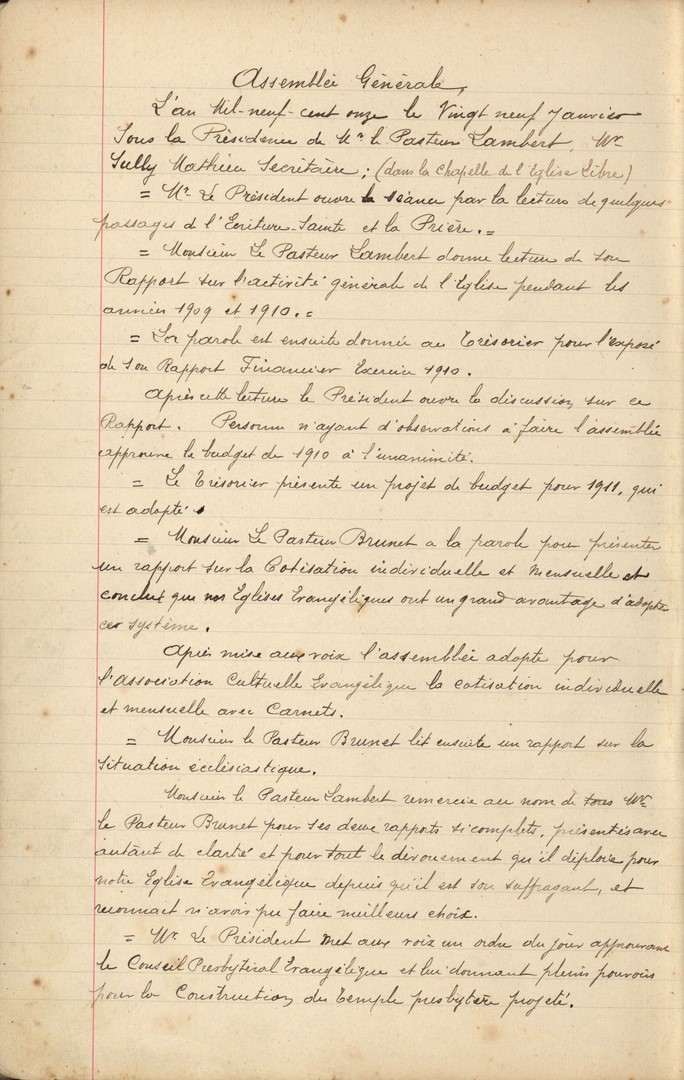 Assemblée Générale
L'an Mil-neuf-cent onze le Vingt neuf Janvier
Sous la Présidence de Mr le Pasteur Lambert, Mr
Sully Mathieu Secrétaire; (dans la Chapelle de l'Eglise Libre)
= Mr Le Président ouvre la séance par la lecture de quelques
passages de l'Ecriture-Sainte et la Prière. =
= Monsieur Le Pasteur Lambert donne lecture de son
Rapport sur l'activité générale de l'Eglise pendant les
années 1909 et 1910. =
= La parole est ensuite donnée au Trésorier pour l'exposé
de son Rapport Financier Exercice 1910.
Après cette lecture le Président ouvre la discussion sur ce
Rapport. Personne n'ayant d'observations à faire l'assemblée
approuve le budget de 1910 à l'unanimité.
= Le Trésorier présente un projet de budget pour 1911, qui
est adopté.
= Monsieur Le Pasteur Brunet a la parole pour présenter
un rapport sur la Cotisation individuelle et Mensuelle et
conclut que nos Eglises Evangéliques ont un grand avantage d'adopter
ce système.
Après mise aux voix l'assemblée adopte pour
l'association Cultuelle Evangélique la cotisation individuelle
et mensuelle avec Carnets.
= Monsieur le Pasteur Brunet lit ensuite un rapport sur la
Situation écclésiastique.
Monsieur le Pasteur Lambert remercie au nom de tous Mr
le Pasteur Brunet pour ses deux rapports si complets, présentés avec
autant de clarté et pour tout le dévouement qu'il déploie pour
notre Eglise Evangélique depuis qu'il est son suffragant, et
reconnait n'avoir pu faire meilleurs choix.
= Mr Le Président Met aux voix un ordre du jour approuvant
le Conseil Presbytéral Evangélique et lui donnant pleins pouvoirs
pour la Construction du Temple presbytère projeté.